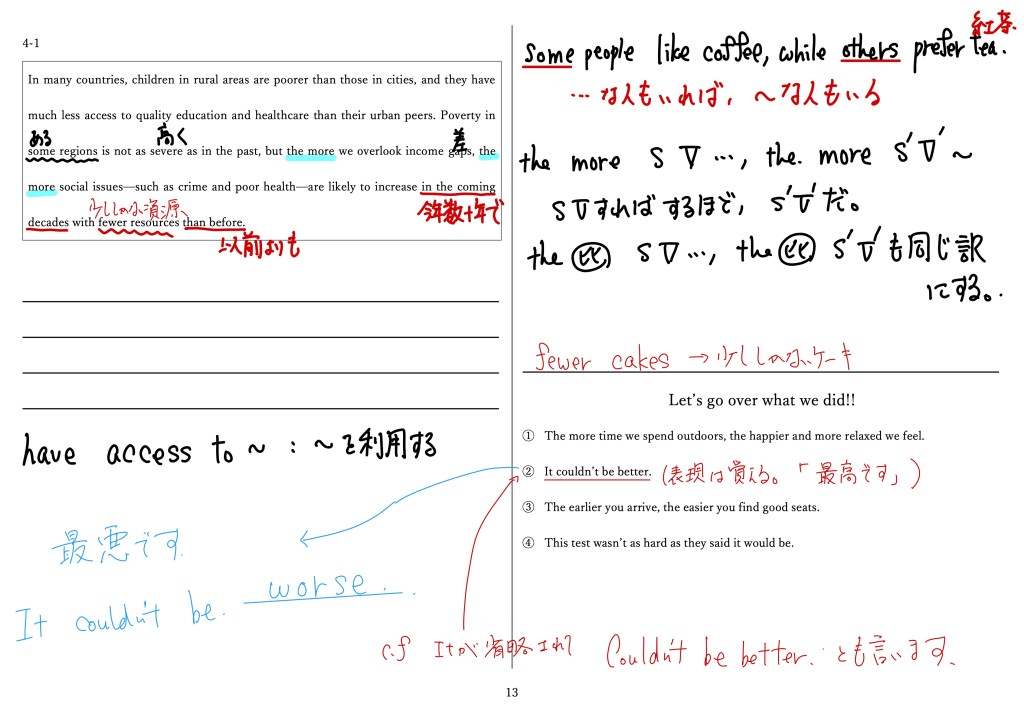 4-1
In many countries, children in rural areas are poorer than those in cities, and they have
much less access to quality education and healthcare than their urban peers. Poverty in
ある 高く 差
some regions is not as severe as in the past, but the more we overlook income gaps, the
more social issues—such as crime and poor health—are likely to increase in the coming
少ししかない資源、 今年数十年で
decades with fewer resources than before.
以前よりも
have access to ～ : ～を利用する
最悪です
It couldn't be. worse.
紅茶
Some people like coffee, while others prefer tea.
…な人もいれば、～な人もいる
the more S V …, the. more S'V' ～
S V すればするほど、S'V' だ。
the 比 S V …, the 比 S'V' も同じ訳
にする。
fewer cakes → 少ししかないケーキ
Let's go over what we did!!
① The more time we spend outdoors, the happier and more relaxed we feel.
② It couldn't be better. (表現は覚える。「最高です」)
③ The earlier you arrive, the easier you find good seats.
④ This test wasn't as hard as they said it would be.
c.f Itが省略されて Couldn't be better. とも言います.
13